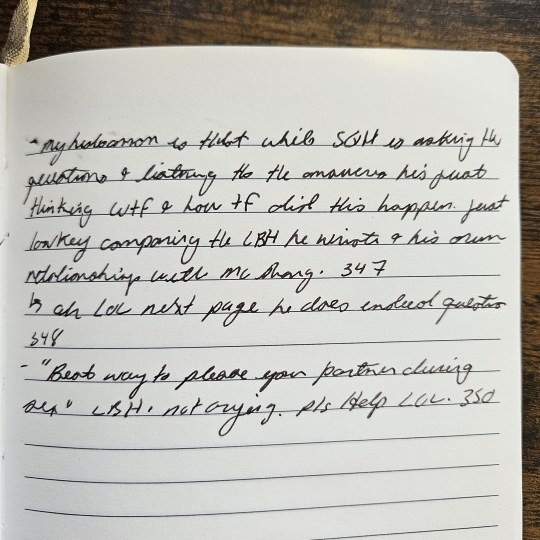 - My headcanon is that while SQH is asking the
questions & listning to the answers his just
thinking wtf & how tf did this happen. Just
lowkey comparing the LBH he wrote & his own
relationship with Mc Shang. 347
↳ ah LOL next page he does indeed question
348
- "Best way to please your partner during
sex" LBH. not crying. pls Help LOL. 350